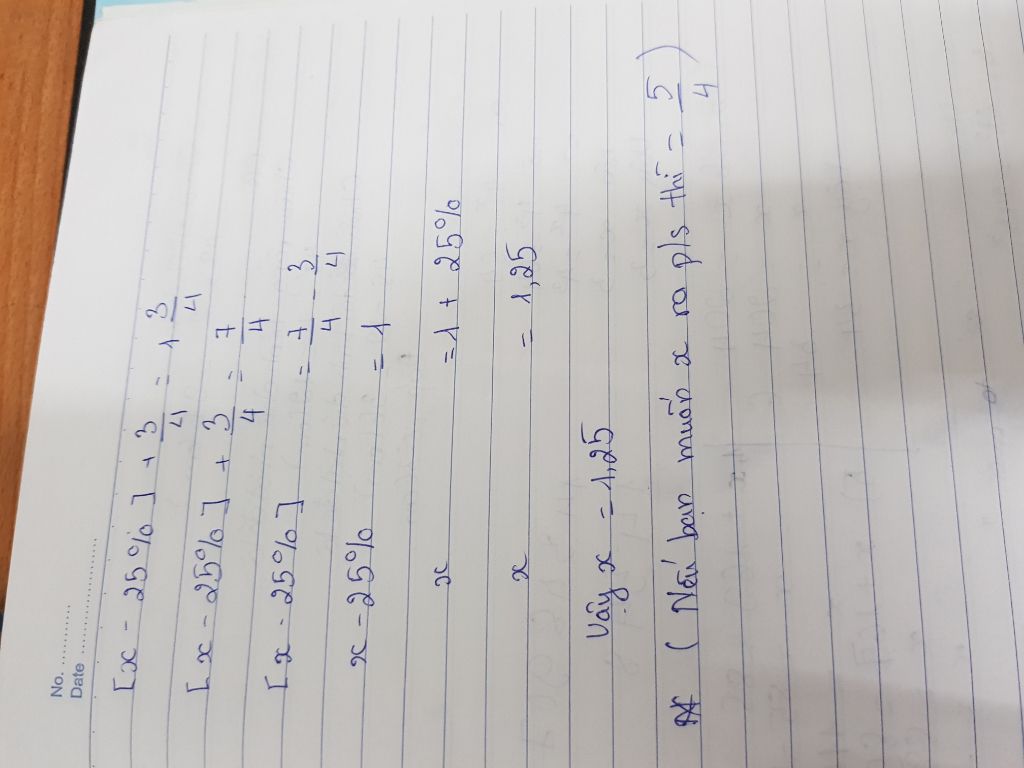 No. ............
Date ........................
[x - 25%] + 3/4 = 1 3/4
[x - 25%] + 3/4 = 7/4
[x - 25%] = 7/4 - 3/4
x - 25% = 1
x = 1 + 25%
x = 1,25
Vậy x = 1,25
(Nếu bạn muốn x ra p/s thì = 5/4)